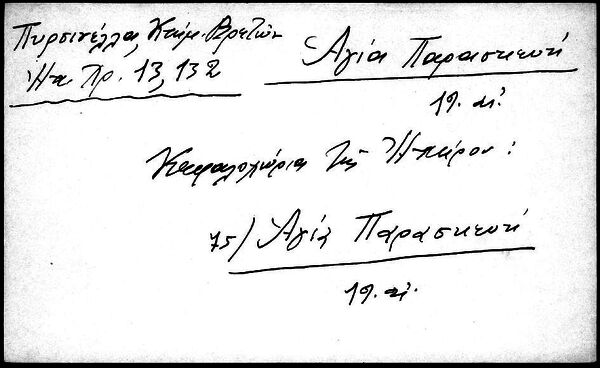 Πυρσινέλλα, Κτημ. Βρετών
Ηπ Χρ. 13, 132
Αγία Παρασκευή
19. αἰ.
Κεφαλοχώρια τῆς Ἠπείρου:
75) Αγία Παρασκευή
19. αἰ.